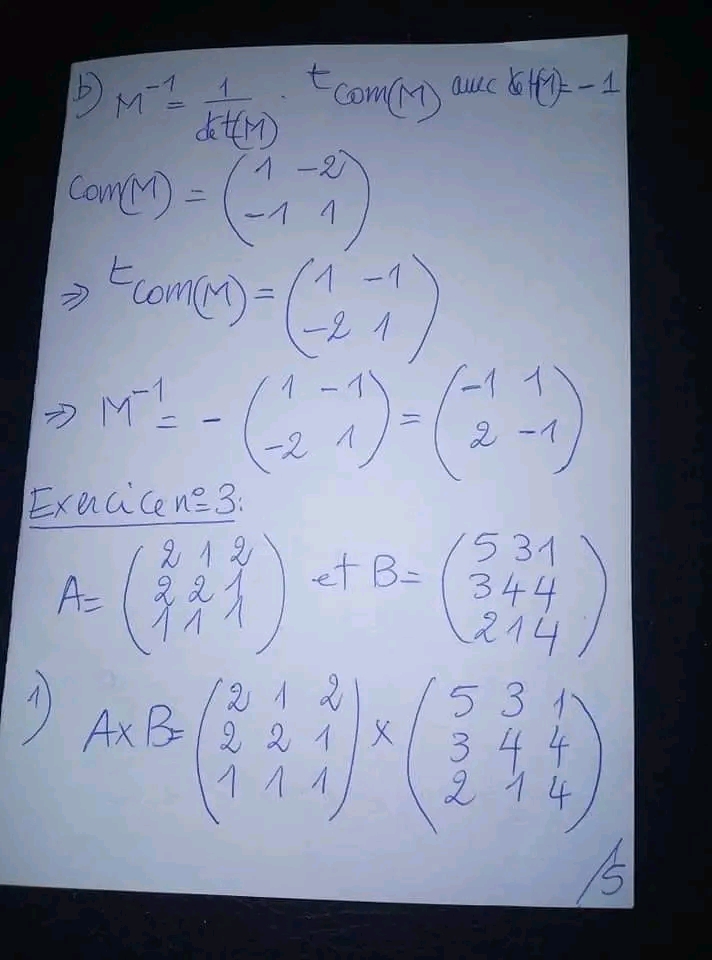 b) M⁻¹ = 1/det(M) · ᵗcom(M) avec det(M) = -1
Com(M) = (1 -2
-1 1)
⇒ ᵗcom(M) = (1 -1
-2 1)
⇒ M⁻¹ = - (1 -1
-2 1) = (-1 1
2 -1)
Exercice n°=3:
A= (2 1 2
2 2 1
1 1 1) et B= (5 3 1
3 4 4
2 1 4)
1) A×B= (2 1 2
2 2 1
1 1 1) × (5 3 1
3 4 4
2 1 4)
/5